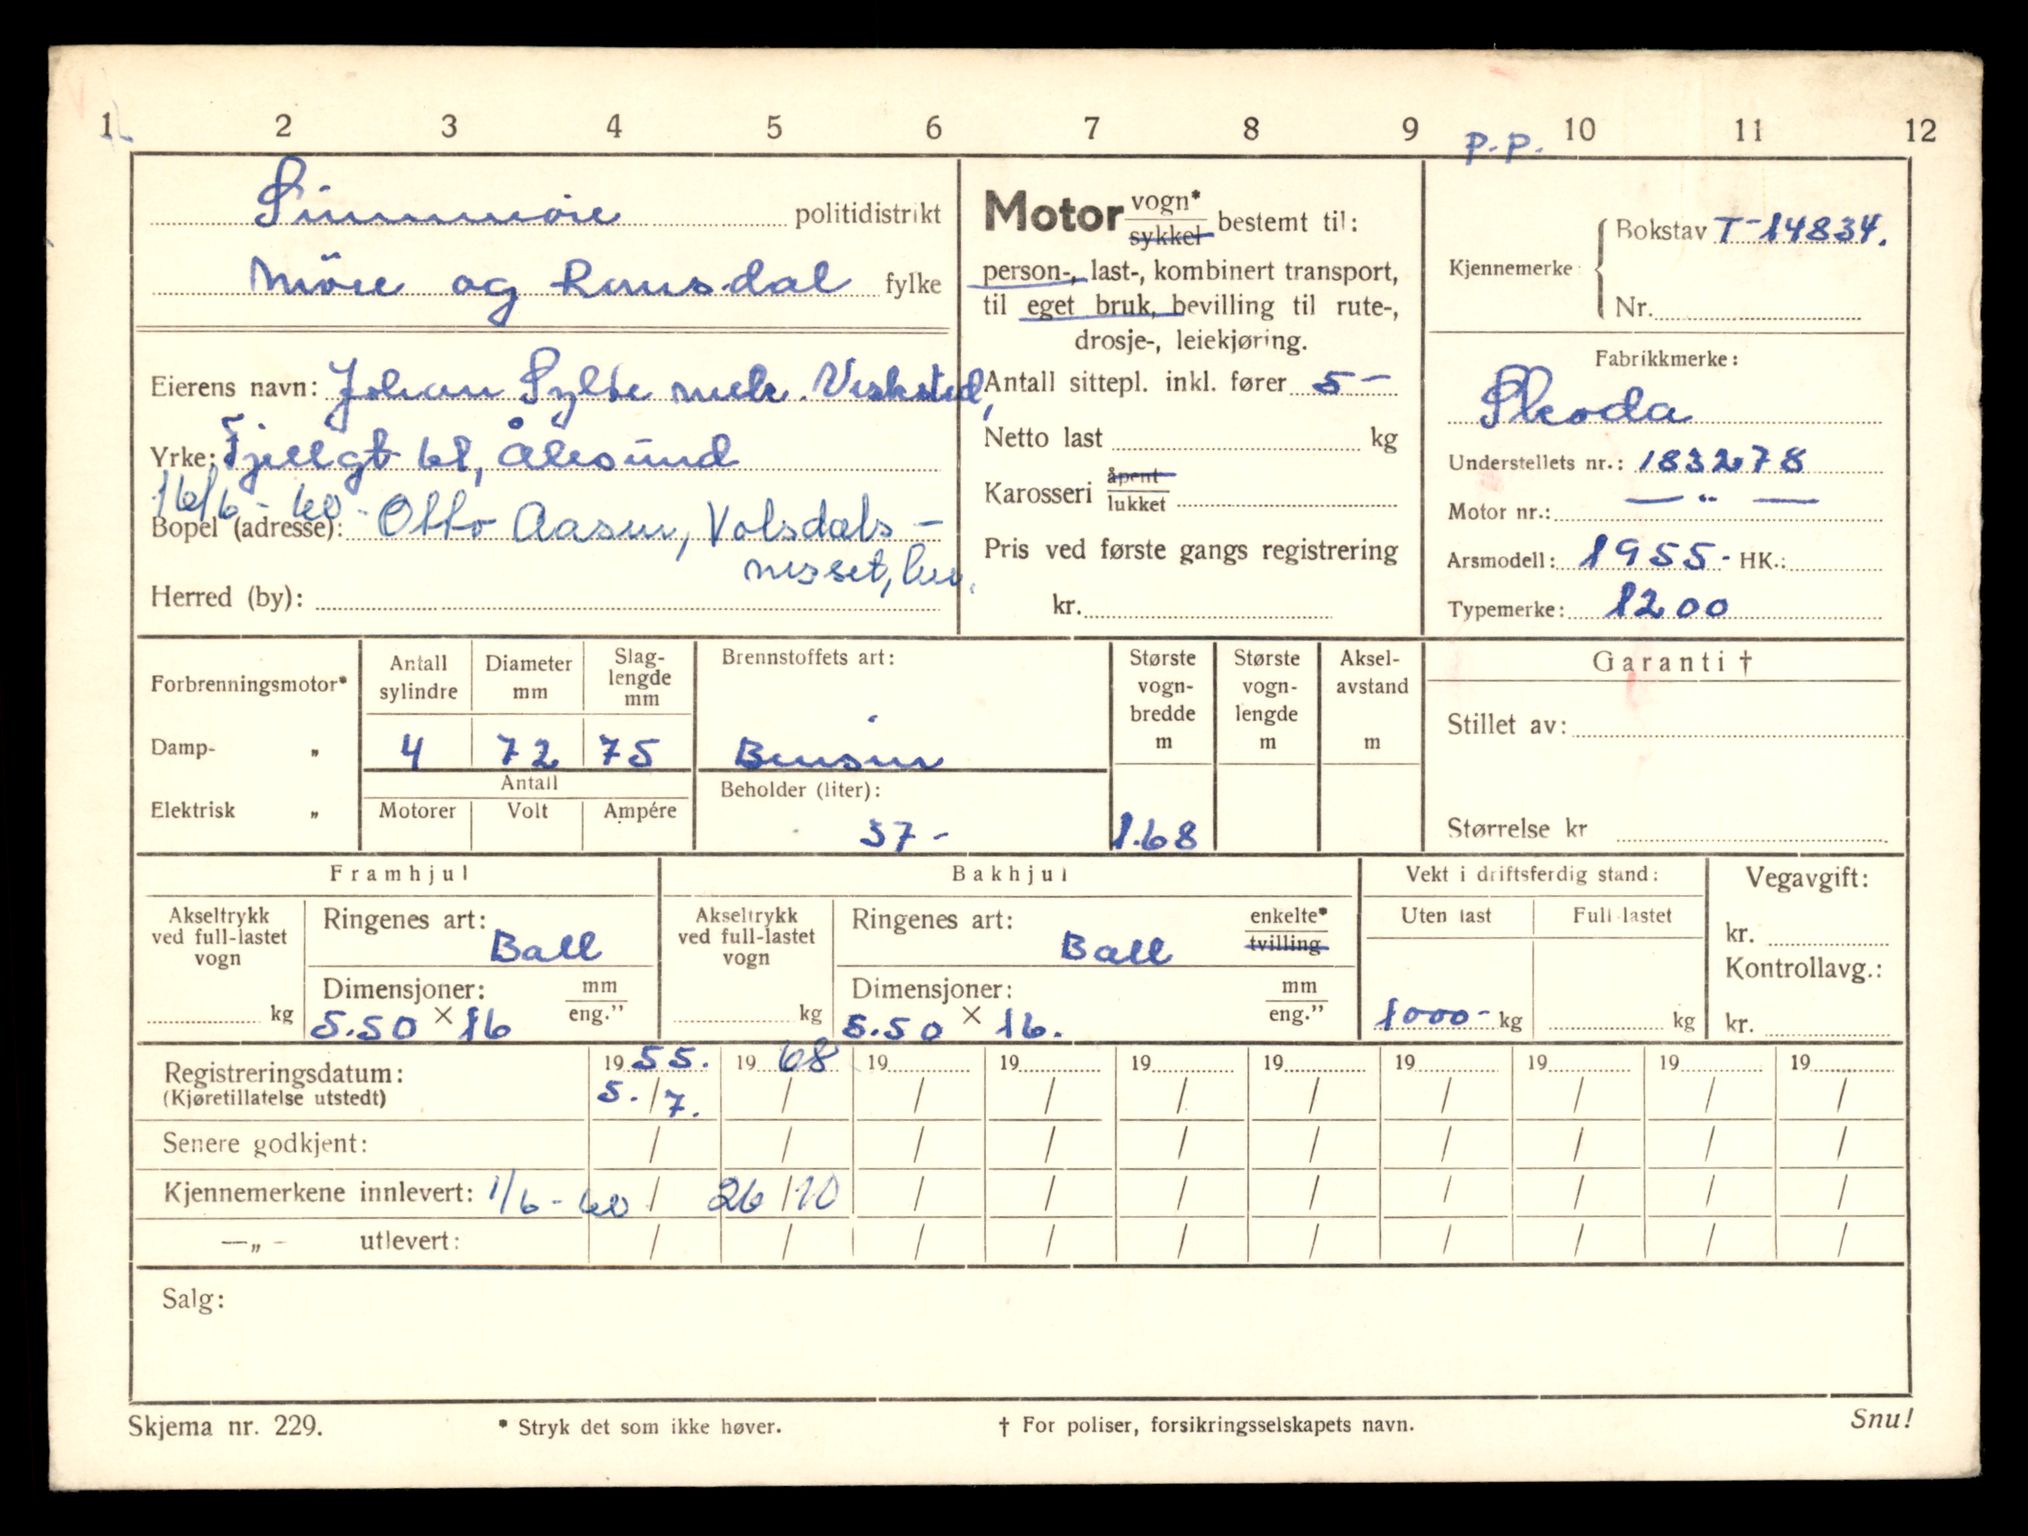 1 2 3 4 5 6 7 8 9 10 11 12
P.P.
Sunnmøre politidistrikt
Møre og Romsdal fylke
Eierens navn: Johan Sylte mek. Verksted,
Yrke: Fjellgt 61, Ålesund
16/6-60 -
Bopel (adresse): Otto Aasen, Volsdals-
nesset, her.
Herred (by):
Motor vogn* sykkel bestemt til:
person-, last-, kombinert transport,
til eget bruk, bevilling til rute-,
drosje-, leiekjøring.
Antall sittepl. inkl. fører 5-
Netto last kg
Karosseri åpent lukket
Pris ved første gangs registrering
kr.
Kjennemerke Bokstav T-14834.
Nr.
Fabrikkmerke:
Skoda
Understellets nr.: 183278
Motor nr.: — " —
Arsmodell: 1955- HK.:
Typemerke: 1200
Forbrenningsmotor*
Damp- "
Elektrisk "
Antall sylindre
Diameter mm
Slag-lengde mm
4 72 75
Antall
Motorer Volt Ampére
Brennstoffets art:
Bensin
Beholder (liter):
37-
Største vogn-bredde m
1.68
Største vogn-lengde m
Aksel-avstand m
Garanti †
Stillet av:
Størrelse kr
Framhjul
Akseltrykk ved full-lastet vogn
kg
Ringenes art:
Ball
Dimensjoner: mm eng."
5.50 × 16
Bakhjul
Akseltrykk ved full-lastet vogn
kg
Ringenes art: enkelte* tvilling
Ball
Dimensjoner: mm eng."
5.50 × 16.
Vekt i driftsferdig stand:
Uten last Full-lastet
1000- kg kg
Vegavgift:
kr.
Kontrollavg.:
kr.
Registreringsdatum: 1955. 1968 19 19 19 19 19 19 19 19
(Kjøretillatelse utstedt) 5./7. / / / / / / / / /
Senere godkjent: / / / / / / / / / /
Kjennemerkene innlevert: 1/6-60 / 26/10 / / / / / / / /
—„— utlevert: / / / / / / / / / /
Salg:
Skjema nr. 229. * Stryk det som ikke høver. † For poliser, forsikringsselskapets navn. Snu!